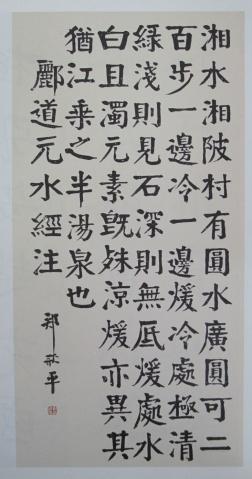 湘水湘陂村有圓水廣圓可二
百步一邊冷一邊煖冷處極清
綠淺則見石深則無底煖處水
白且濁元素既殊涼煖亦異其
猶江乘之半湯泉也
酈道元水經注